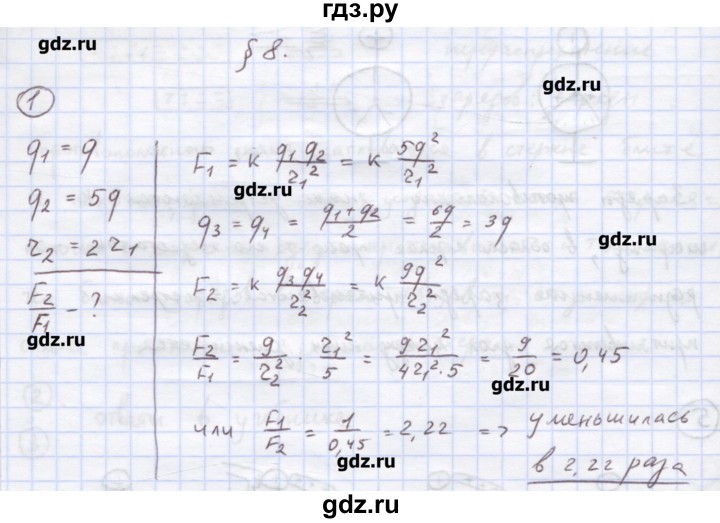 гдз.ру
gdz.ru
§ 8.
gdz.ru
1
q₁ = q
q₂ = 5q
r₂ = 2r₁
F₂/F₁ - ?
gdz.ru
F₁ = к q₁q₂/r₁² = к 5q²/r₁²
gdz.ru
q₃ = q₄ = (q₁+q₂)/2 = 6q/2 = 3q
gdz.ru
F₂ = к q₃q₄/r₂² = к 9q²/r₂²
gdz.ru
F₂/F₁ = 9/r₂² · r₁²/5 = 9r₁²/(4r₁²·5) = 9/20 = 0,45
gdz.ru
или F₁/F₂ = 1/0,45 = 2,22 => уменьшилась
в 2,22 раза
gdz.ru
gdz.ru